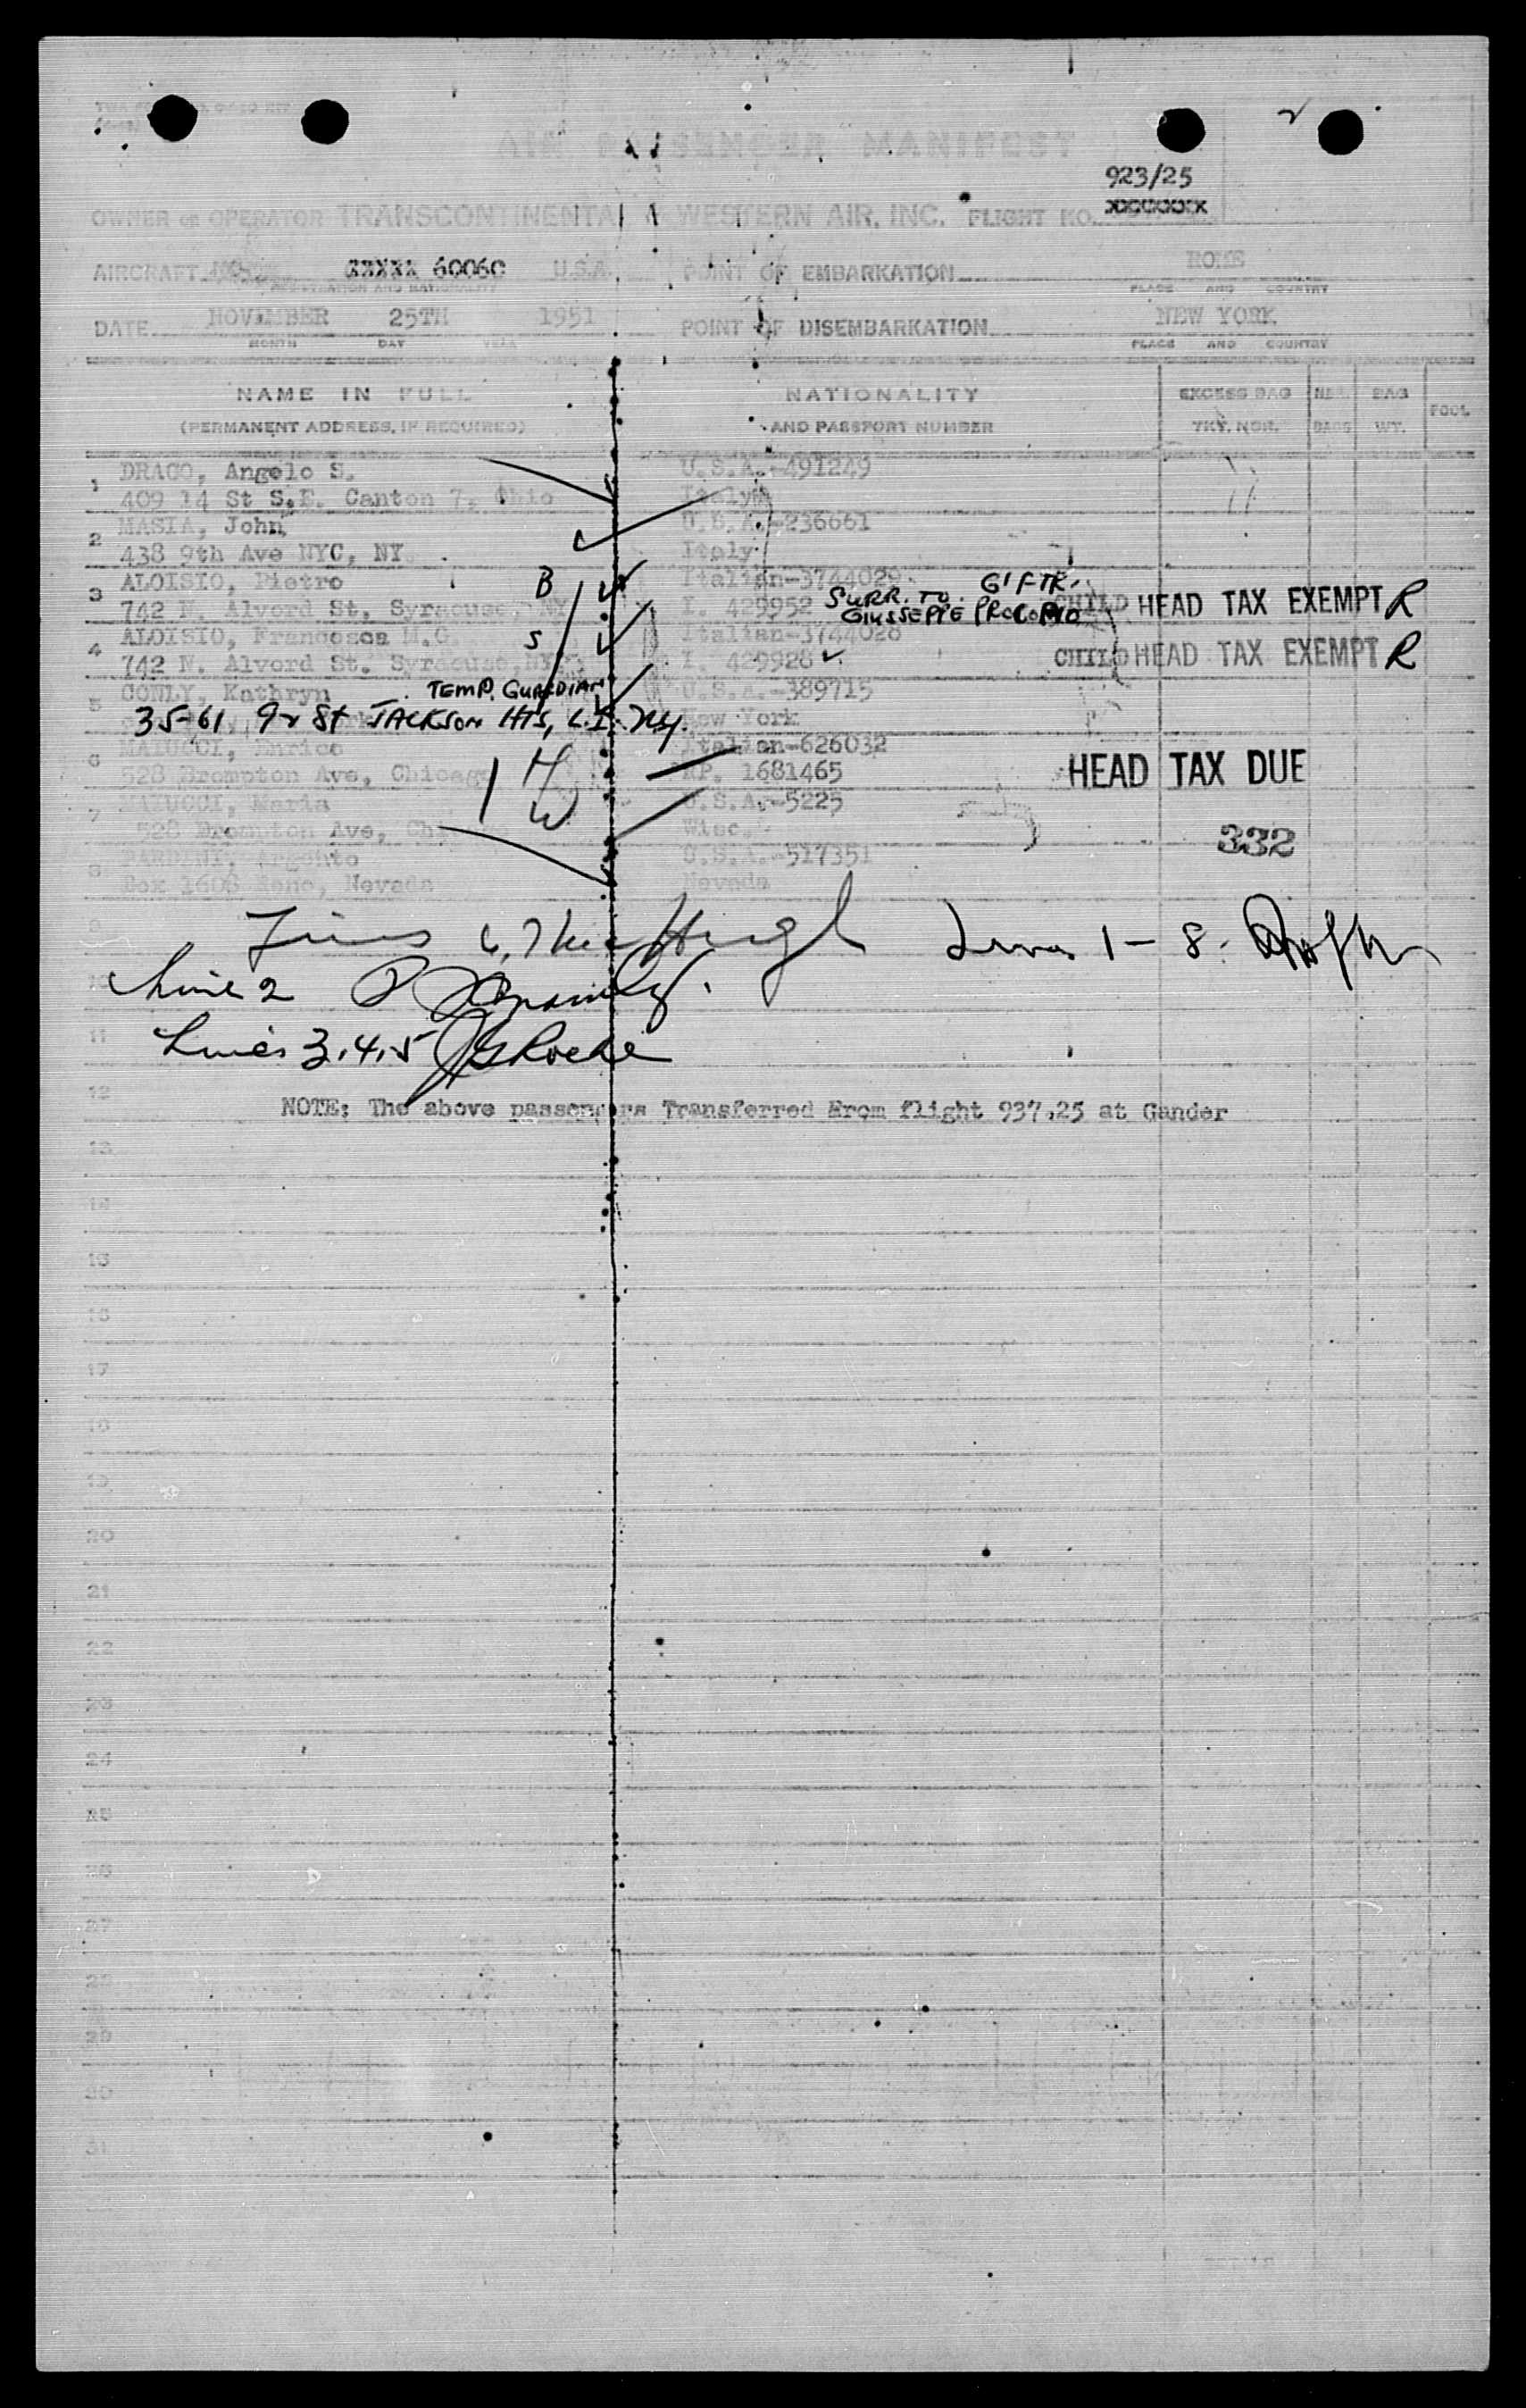 AIR PASSENGER MANIFEST
923/25
OWNER OR OPERATOR TRANSCONTINENTAL & WESTERN AIR, INC. FLIGHT NO. XXXXXXX
AIRCRAFT XXXXX 6006C U.S.A. POINT OF EMBARKATION ROME
REGISTRATION AND NATIONALITY PLACE AND COUNTRY
DATE NOVEMBER 25TH 1951 POINT OF DISEMBARKATION NEW YORK
MONTH DAY YEAR PLACE AND COUNTRY
NAME IN FULL NATIONALITY EXCESS BAG NBR. BAG POOL
(PERMANENT ADDRESS, IF REQUIRED) AND PASSPORT NUMBER TKT. NBR. BAGS WT.
1 DRAGO, Angelo S. U.S.A.-491249
409 14 St S.E. Canton 7, Ohio Italy
2 MASIA, John U.S.A.-236661
438 9th Ave NYC, NY Italy
3 ALOISIO, Pietro B Italian-3744029
742 N. Alvord St, Syracuse, NY I. 429952 SURR. TO. G'FTR. GIUSSEPPE PROCOPIO CHILD HEAD TAX EXEMPT R
4 ALOISIO, Francesca M.G. S Italian-3744028
742 N. Alvord St. Syracuse, NY I. 429928 CHILD HEAD TAX EXEMPT R
5 CONLY, Kathryn TEMP. GUARDIAN U.S.A.-389715
35-61 92 St JACKSON HTS, L.I. NY. New York
6 MAIUCCI, Enrico H Italian-626032
528 Brompton Ave, Chicago RP. 1681465 HEAD TAX DUE
7 MAIUCCI, Maria W U.S.A.-5225
528 Brompton Ave, Chi Wisc. 332
8 Argento U.S.A.-517351
Box 1608 Reno, Nevada Nevada
9 Lines 1-8.
10 Line 2
11 Lines 3.4.5 Roche
12 NOTE; The above passengers Transferred From flight 937.25 at Gander
13
14
15
16
17
18
19
20
21
22
23
24
25
26
27
28
29
30
31